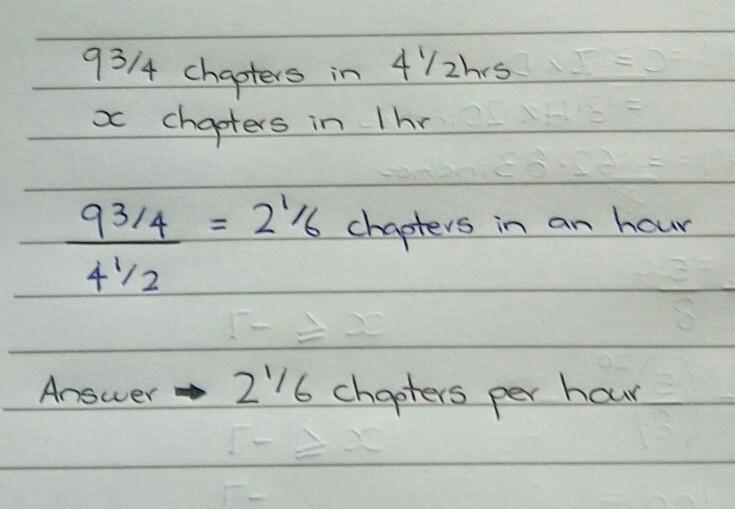 9 3/4 chapters in 4 1/2 hrs
x chapters in 1 hr
9 3/4 = 2 1/6 chapters in an hour
4 1/2
Answer ➡ 2 1/6 chapters per hour